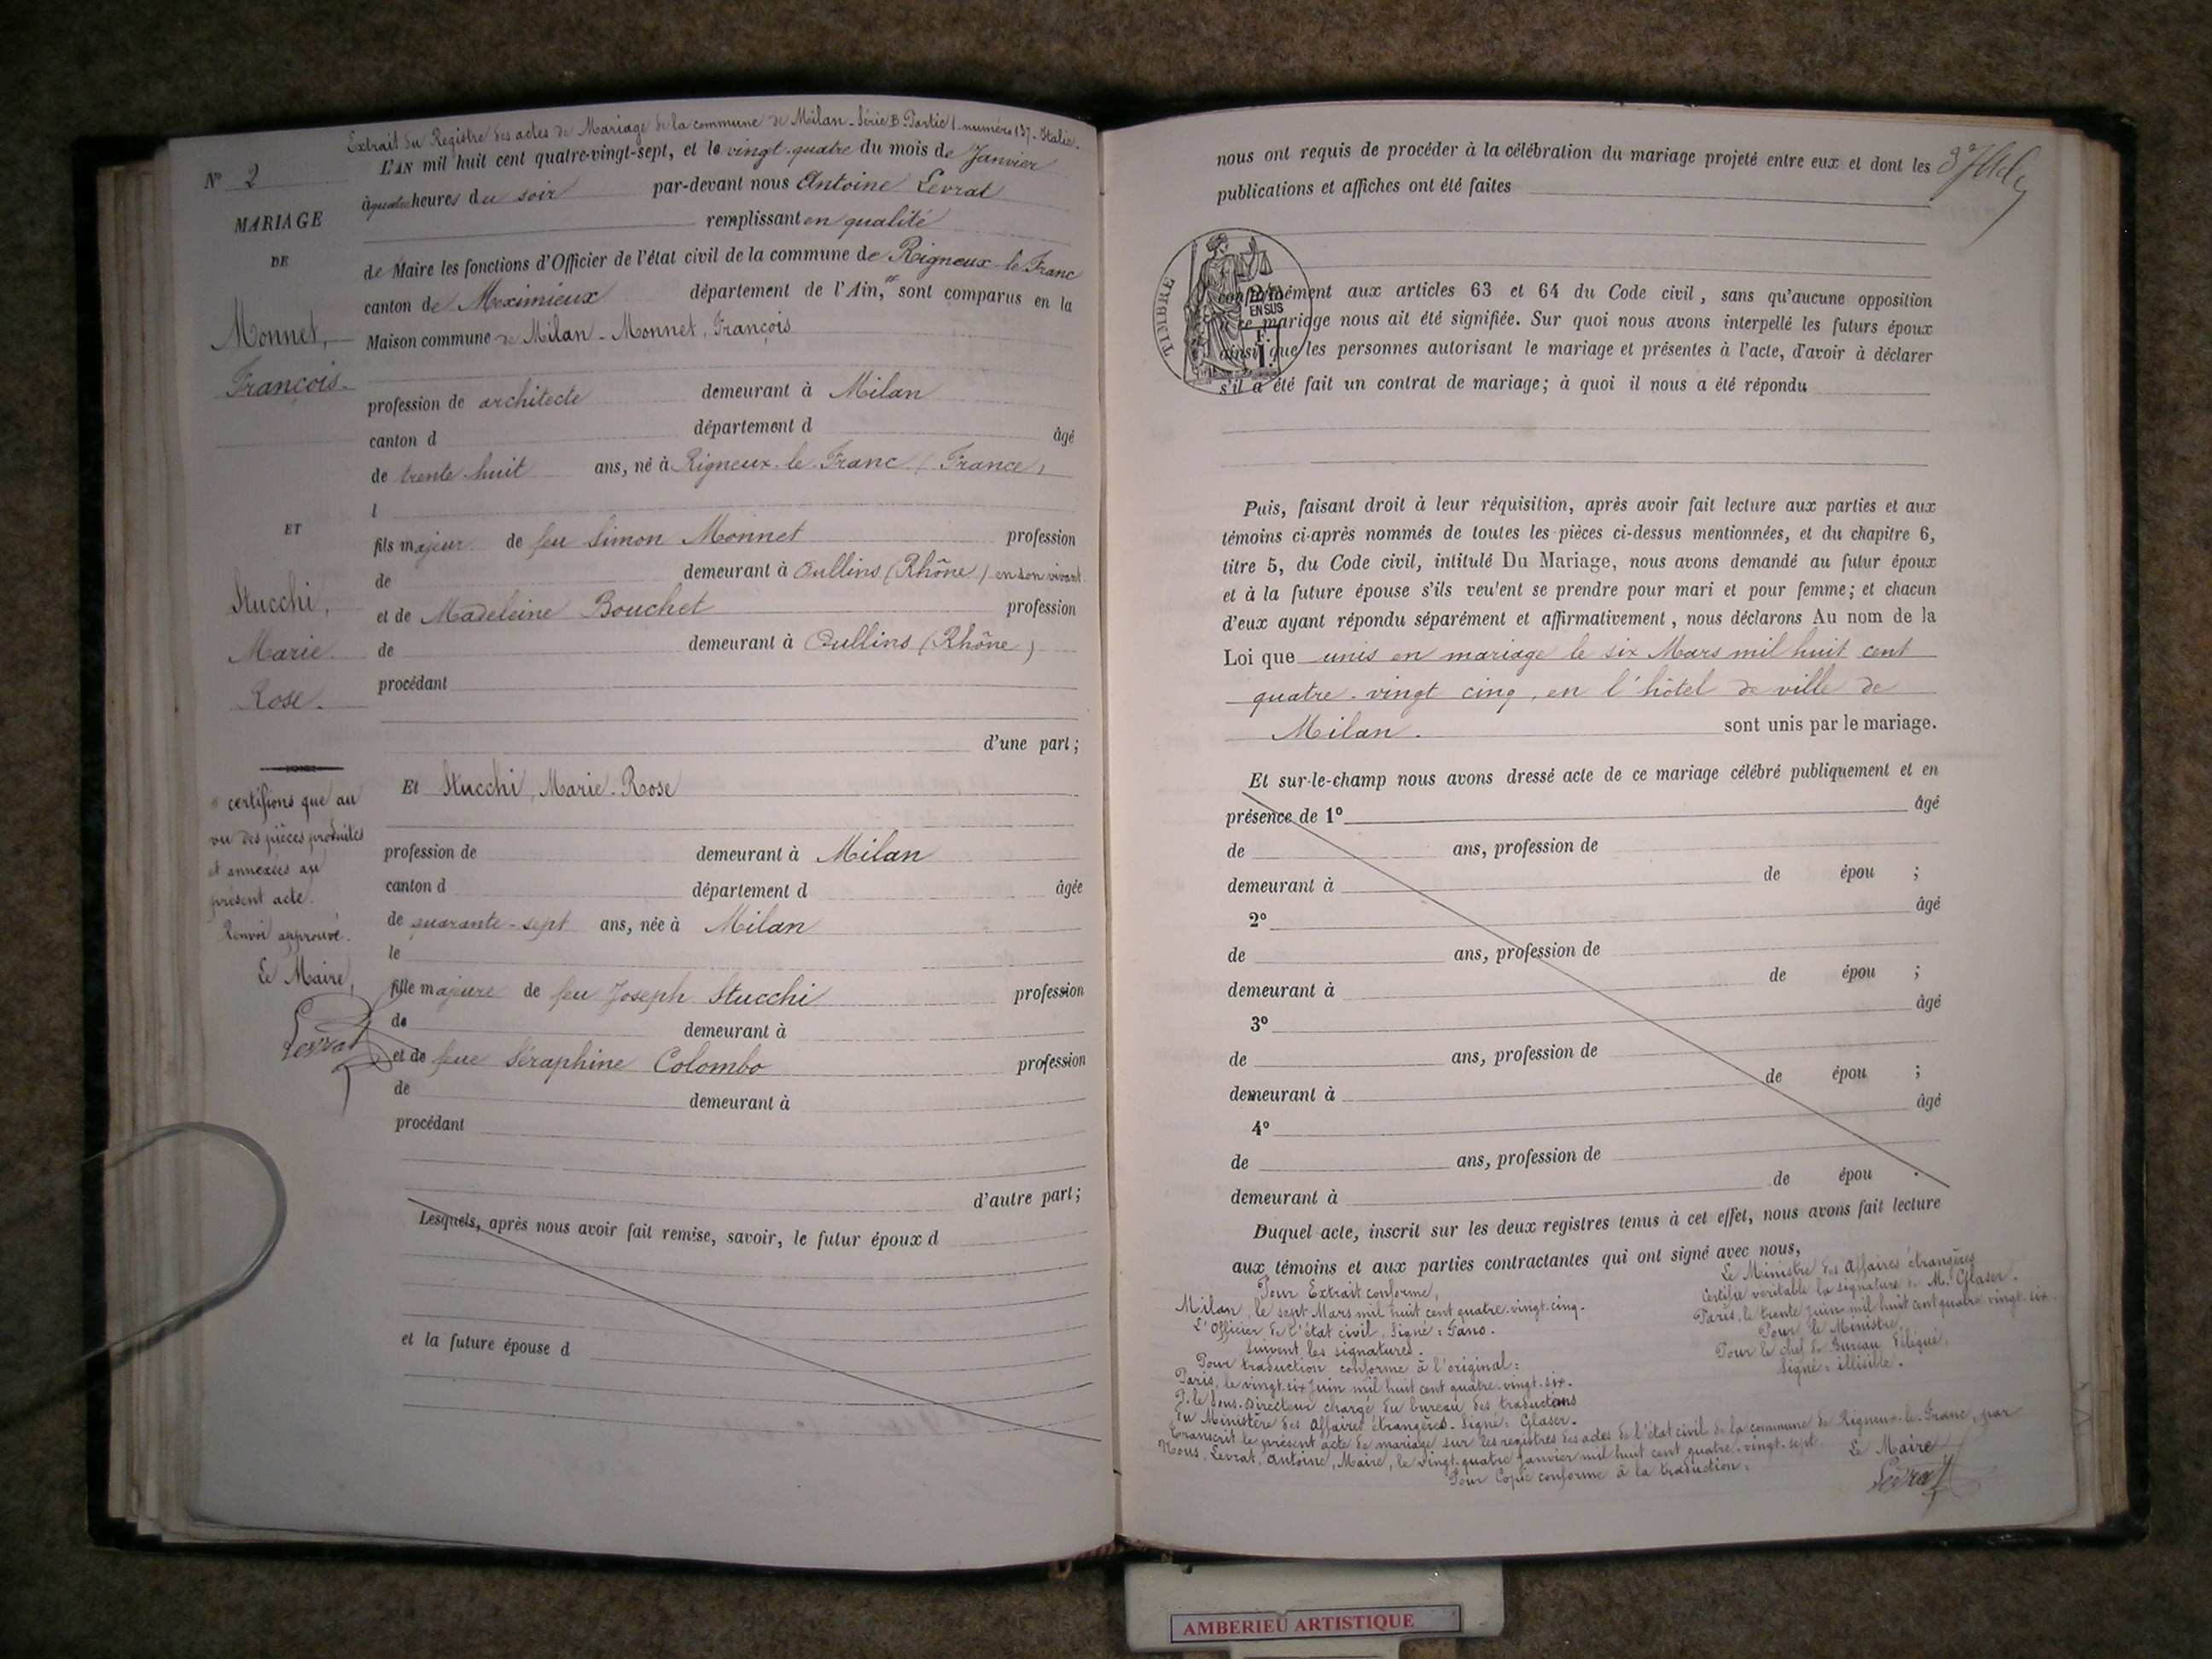 Extrait du Registre des actes de Mariage de la commune de Milan - Série B. Partie 1 - numéro 137 - Italie.
N° 2
L'AN mil huit cent quatre-vingt-sept, et le vingt-quatre du mois de Janvier
à quatre heures du soir par-devant nous Antoine Levrat
remplissant en qualité
de Maire les fonctions d'Officier de l'état civil de la commune de Rigneux-le-Franc
canton de Meximieux département de l'Ain, sont comparus en la
Maison commune de Milan - Monnet, François
profession de architecte demeurant à Milan
canton d département d âgé
de trente-huit ans, né à Rigneux-le-Franc (France)
l
fils majeur de feu Simon Monnet profession
de demeurant à Oullins (Rhône) en son vivant
et de Madeleine Bouchet profession
de demeurant à Oullins (Rhône)
procédant
d'une part;
Et Stucchi, Marie-Rose
profession de demeurant à Milan
canton d département d âgée
de quarante-sept ans, née à Milan
le
fille majeure de feu Joseph Stucchi profession
de demeurant à
et de feue Séraphine Colombo profession
de demeurant à
procédant
d'autre part;
Lesquels, après nous avoir fait remise, savoir, le futur époux d
et la future épouse d
MARIAGE
DE
Monnet,
François.
ET
Stucchi,
Marie
Rose.
certifions que au
vu des pièces produites
et annexées au
présent acte.
Renvoi approuvé.
Le Maire,
Levrat
nous ont requis de procéder à la célébration du mariage projeté entre eux et dont les
publications et affiches ont été faites
TIMBRE
EN SUS
conformément aux articles 63 et 64 du Code civil, sans qu'aucune opposition
ce mariage nous ait été signifiée. Sur quoi nous avons interpellé les futurs époux
ainsi que les personnes autorisant le mariage et présentes à l'acte, d'avoir à déclarer
s'il a été fait un contrat de mariage; à quoi il nous a été répondu
Puis, faisant droit à leur réquisition, après avoir fait lecture aux parties et aux
témoins ci-après nommés de toutes les pièces ci-dessus mentionnées, et du chapitre 6,
titre 5, du Code civil, intitulé Du Mariage, nous avons demandé au futur époux
et à la future épouse s'ils veu'ent se prendre pour mari et pour femme; et chacun
d'eux ayant répondu séparément et affirmativement, nous déclarons Au nom de la
Loi que unis en mariage le six Mars mil huit cent
quatre-vingt cinq, en l'hôtel de ville de
Milan. sont unis par le mariage.
Et sur-le-champ nous avons dressé acte de ce mariage célébré publiquement et en
présence de 1° âgé
de ans, profession de
demeurant à de épou ;
2° âgé
de ans, profession de
demeurant à de épou ;
3° âgé
de ans, profession de
demeurant à de épou ;
4° âgé
de ans, profession de
demeurant à de épou .
Duquel acte, inscrit sur les deux registres tenus à cet effet, nous avons fait lecture
aux témoins et aux parties contractantes qui ont signé avec nous,
Pour Extrait conforme,
Milan, le sept Mars mil huit cent quatre-vingt-cinq.
L'Officier de l'état civil, Signé: Sano.
suivent les signatures.
Pour traduction conforme à l'original:
Paris, le vingt-six Juin mil huit cent quatre-vingt-six.
P. le Sous-Directeur chargé du bureau des traductions
du Ministère des Affaires étrangères. Signé: Glaser.
Le Ministre des Affaires étrangères
certifie véritable la signature de M. Glaser.
Paris, le trente juin mil huit cent quatre-vingt-six.
Pour le Ministre,
Pour le chef de Bureau délégué,
Signé: illisible.
Transcrit le présent acte de mariage sur les registres des actes de l'état civil de la commune de Rigneux-le-Franc, par
Nous, Levrat, Antoine, Maire, le vingt-quatre janvier mil huit cent quatre-vingt-sept.
Pour Copie conforme à la traduction.
Le Maire
Levrat
AMBERIEU ARTISTIQUE